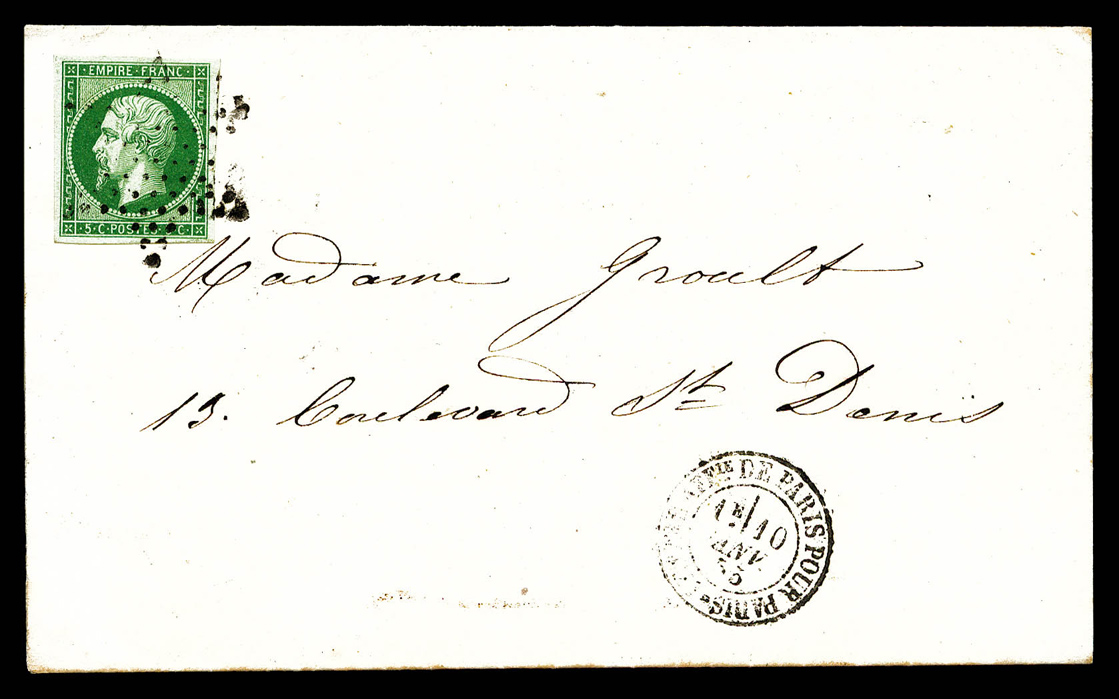 · EMPIRE · FRANC ·
· 5 · C · POSTES · C ·
Madame Groult
13. Boulevard St Denis
AFFIE DE PARIS POUR PARIS
1E 10
JANV